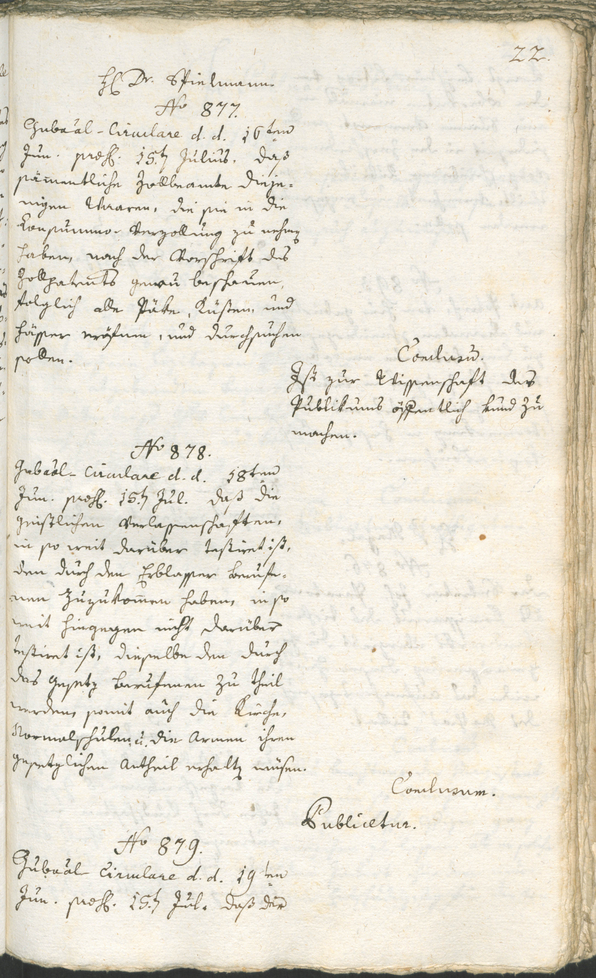 22.
H. Dr. Spielmann.
No 877.
Gubeäl-Circulare d. d. 16ten
Jun. praes. 15t Julius. daß
sämmentliche Zollbeamte dieje-
nigen Waaren, die sie in die
Konsummo-Verzollung zu nehmen
haben, nach der Vorschrift des
Zollpatents genau beschauen,
folglich alle Päke, Kisten, und
Fässer eröfnen, und durchsuchen
sollen.
Conclusu.
Ist zur Wissenschaft des
Publikums öffentlich kund zu
machen.
No 878.
Gubeäl-Circulare d. d. 18ten
Jun. praes. 15t Jul. daß die
geistlichen Verlassenschaften,
in so weit darüber testiret ist,
den durch den Erblasser berufe-
nen zuzukom̄en haben, in so
weit hingegen nicht darüber
testiret ist, dieselbe den durch
das Gesetz berufenen zu theil
werden, somit auch die Kirche,
Normalschulen, u. die Armen ihren
gesetzlichen Antheil erhaltn müsen.
Conclusum.
Publicetur.
No 879.
Gubeäl Circulare d. d. 19ten
Jun. praes. 15t Jul. daß der